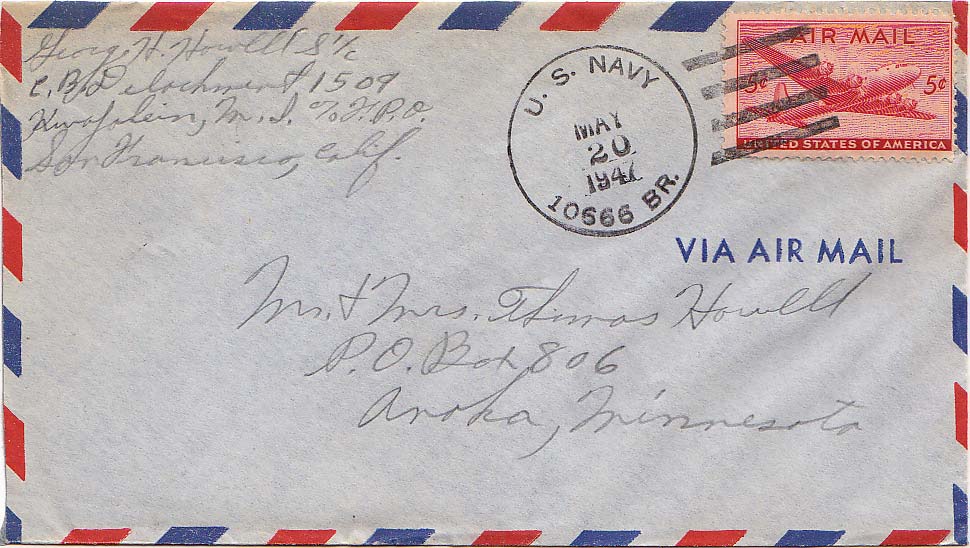 George H. Howell S 1/c
C.B. Detachment, 1509
Kwajalein, M.I. % F.P.O.
San Francisco, Calif.
U. S. NAVY
MAY
20
1947
10666 BR.
AIR MAIL
5¢ 5¢
UNITED STATES OF AMERICA
VIA AIR MAIL
Mr. & Mrs. Thomas Howell
P.O. Box 806
Anoka, Minnesota